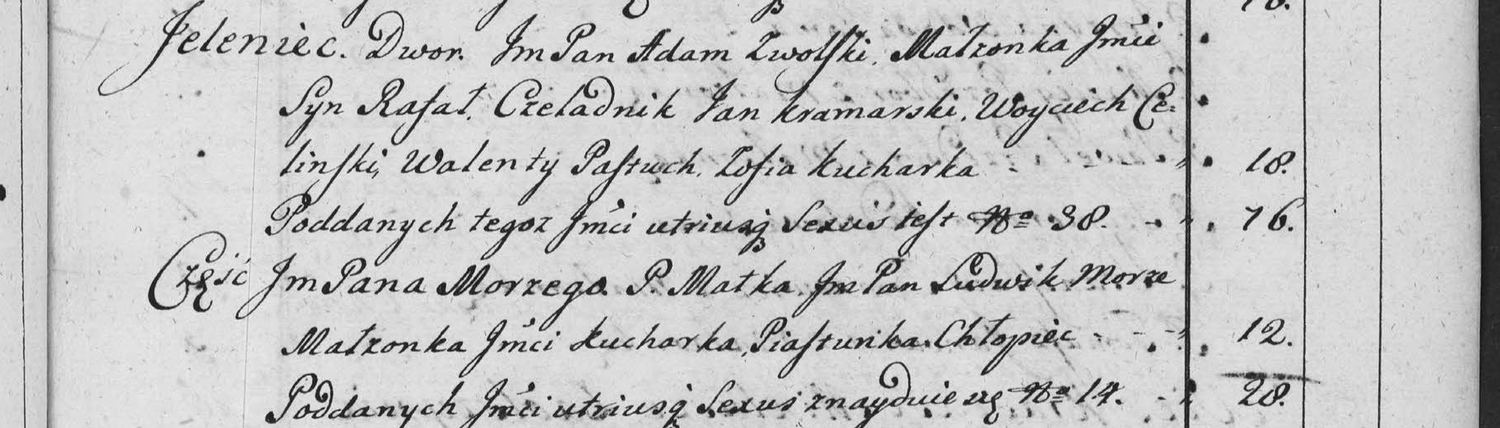 Jeleniec. Dwor. Jm Pan Adam Zwolski. Małżonka Jmći
Syn Rafał, Czeladnik Jan Kramarski, Woyciech Ce=
linski, Walenty Pastuch, Zofia Kucharka 18.
Poddanych tegoz Jmći utriusq Sexus iest No 38. 76.
Część Jm Pana Morzego. P. Matka. Jm Pan Ludwik Morze
Małzonka Jmći Kucharka, Piastunka, Chłopiec 12.
Poddanych Jmći utriusq Sexus znayduie się No 14. 28.